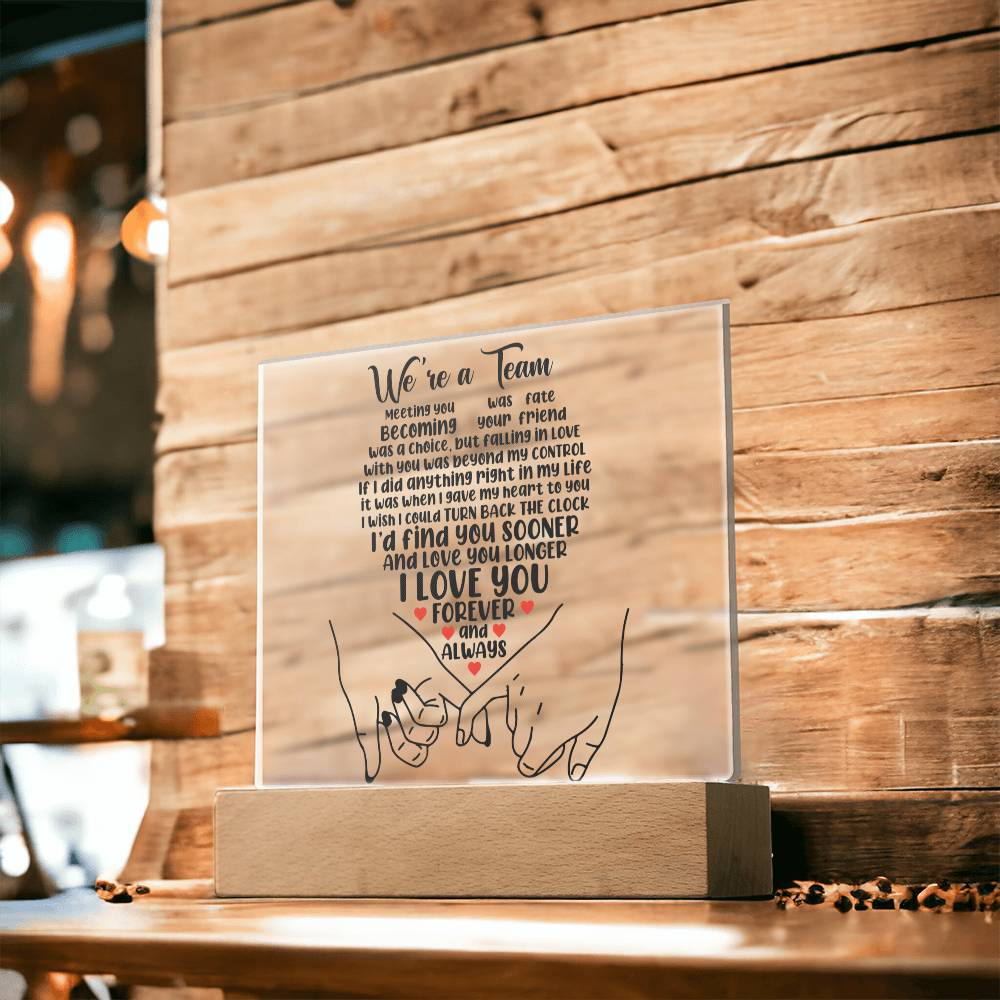 We're a Team
Meeting you was fate
Becoming your friend
was a choice, but falling in LOVE
with you was beyond my CONTROL
If I did anything right in my life
it was when I gave my heart to you
I wish I could TURN BACK THE CLOCK
I'd find you SOONER
And LOVE you LONGER
I LOVE YOU
FOREVER
and
ALWAYS